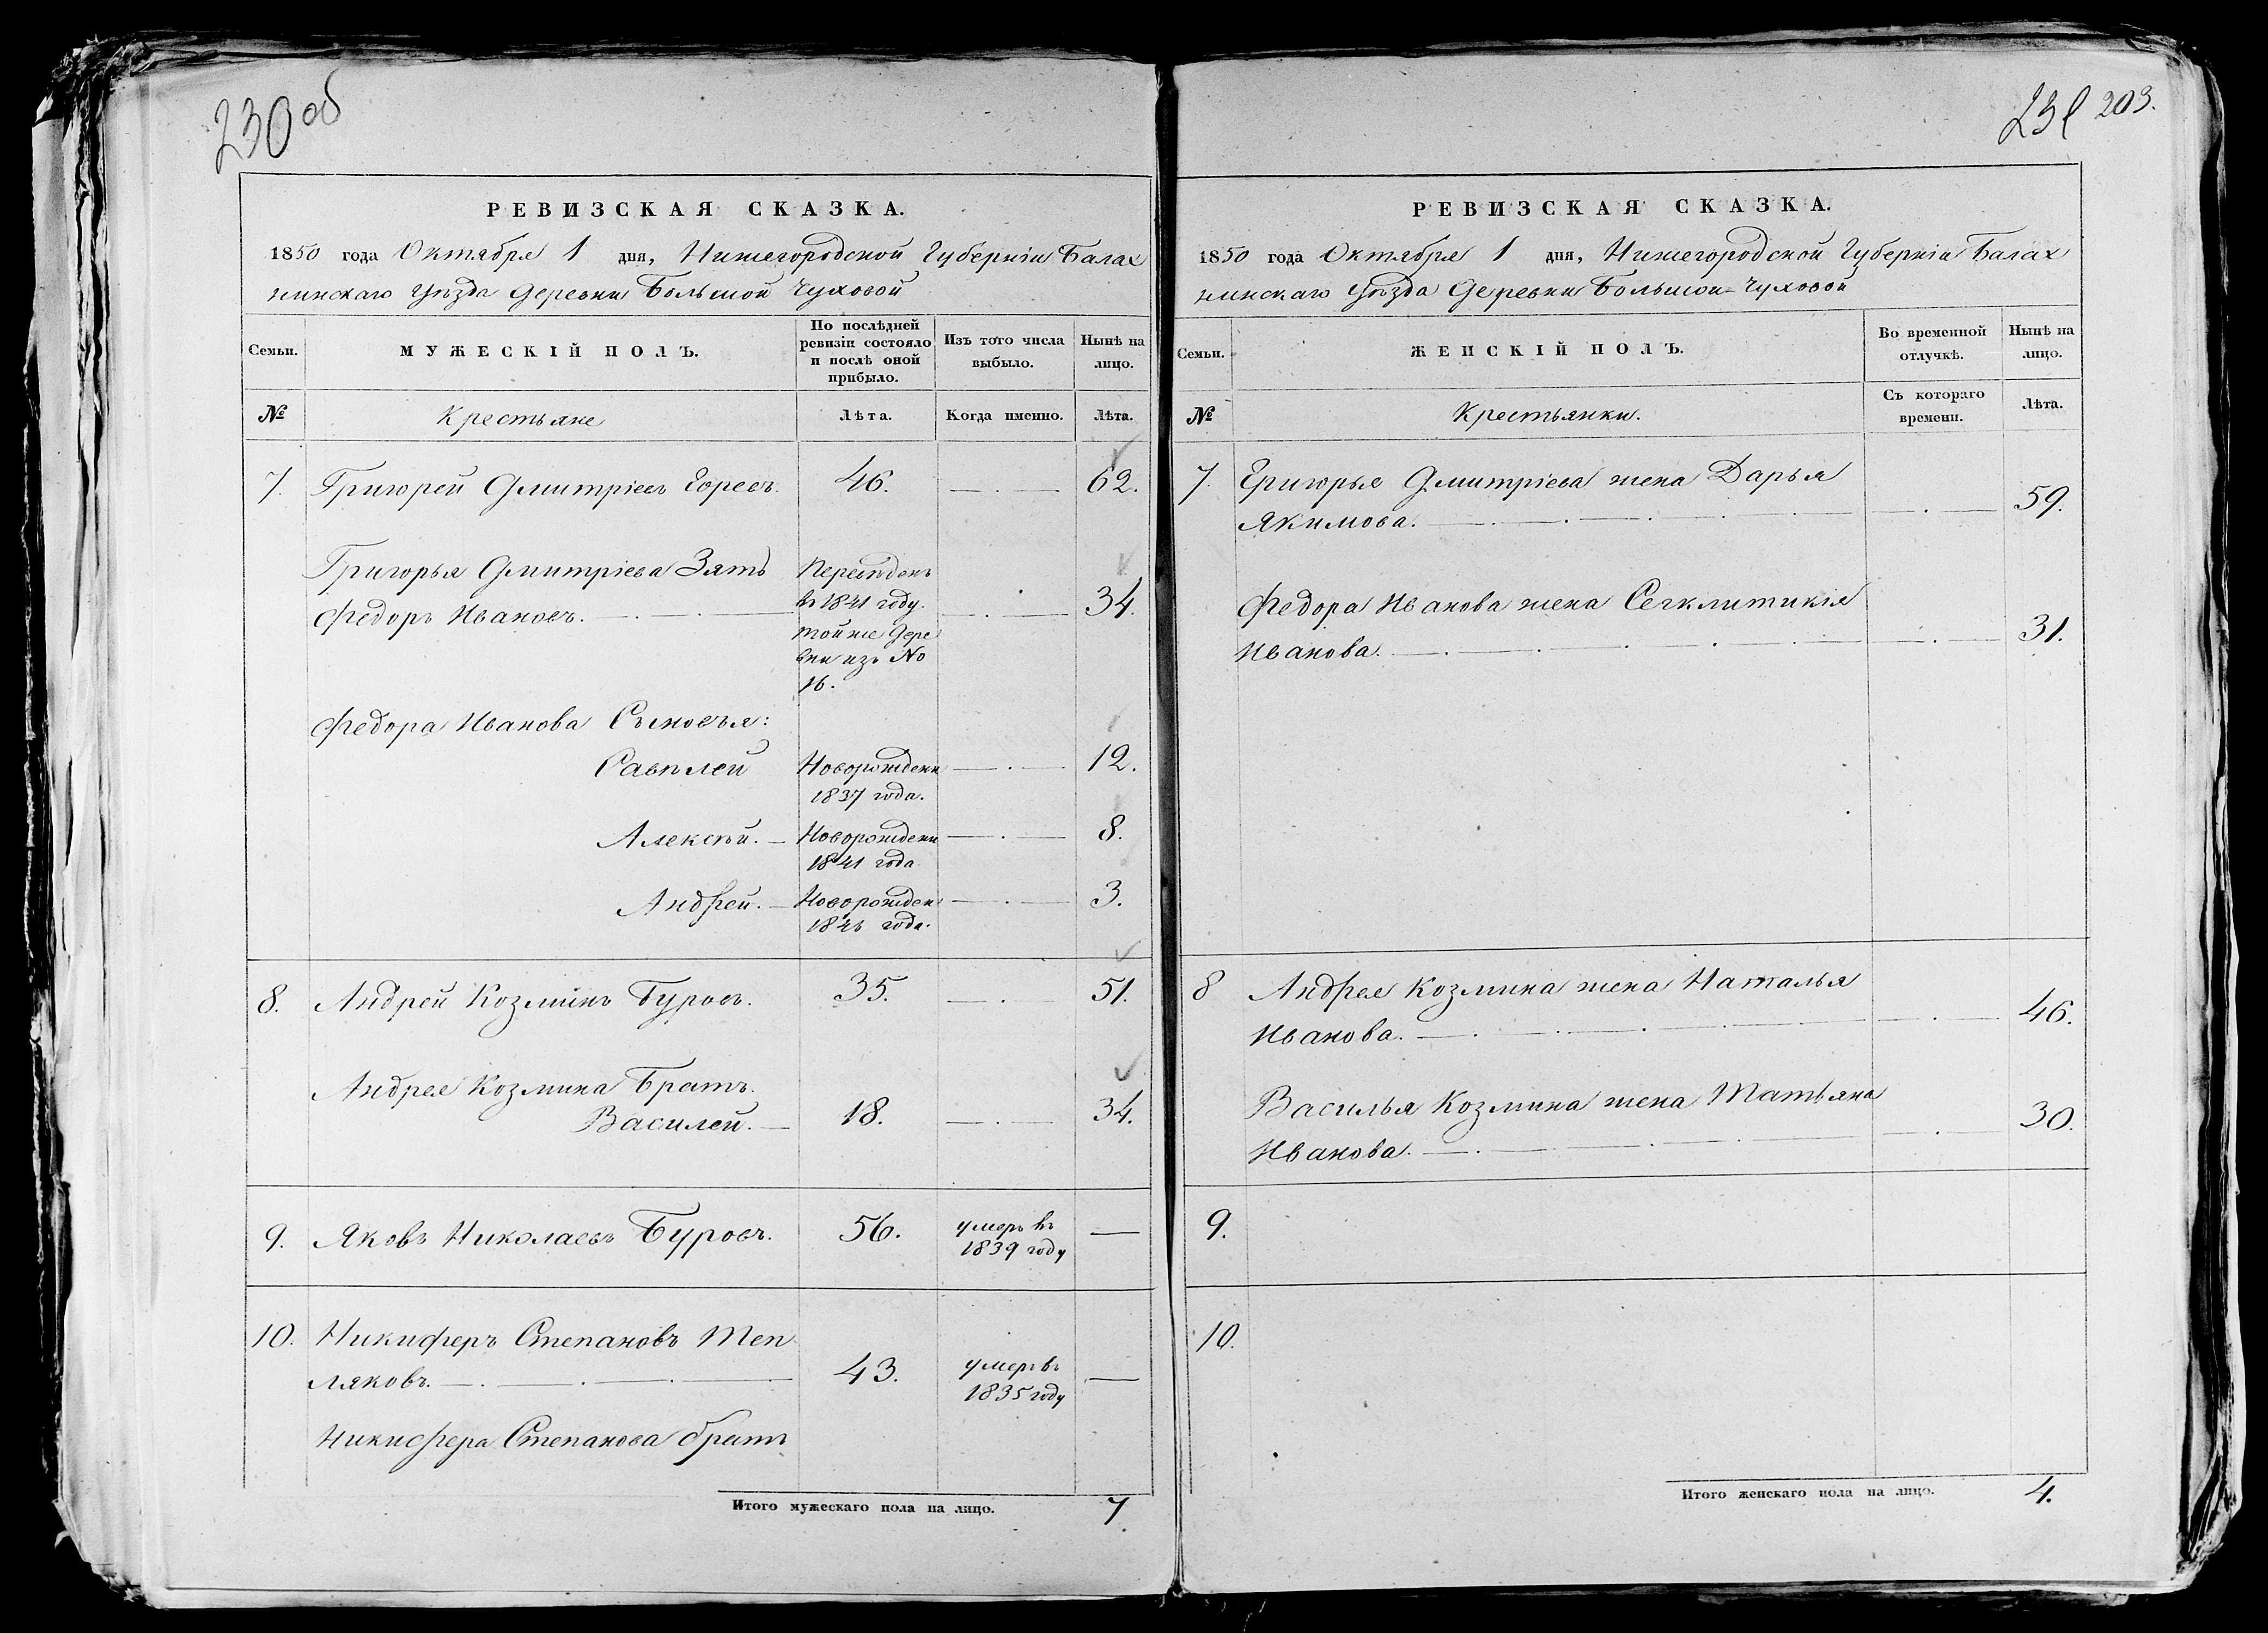 230 об
РЕВИЗСКАЯ СКАЗКА.
1850 года Октября 1 дня, Нижегородской Губерніи Балах
нинскаго Уѣзда Деревни Большой Чуховой
Семьи.
МУЖЕСКІЙ ПОЛЪ.
По послѣдней
ревизіи состояло
и послѣ оной
прибыло.
Изъ того числа
выбыло.
Нынѣ на
лицо.
№
Крестьяне
Лѣта.
Когда именно.
Лѣта.
7. Григорей Дмитріевъ Горевъ. 46. 62.
Григорья Дмитріева Зять Переведенъ
Федоръ Ивановъ. в 1841 году. 34.
тойже дере
вни изъ №
16.
Федора Иванова Сыновья:
Савплей Новорожденн 12.
1837 года.
Алексѣй. Новорожденн 8.
1841 года
Андрей. Новорожден 3.
года.
8. Андрей Козминъ Буровъ. 35. 51.
Андрея Козмина Братъ.
Василей. 18. 34.
9. Яковъ Николаевъ Буровъ. 56. умеръ въ
1839 году
10. Никиферъ Степановъ Теп
ляковъ. 43. умеръ въ
1835 году
Никифера Степанова братъ
Итого мужескаго пола на лицо. 7
231 203.
РЕВИЗСКАЯ СКАЗКА.
1850 года Октября 1 дня, Нижегородской Губерніи Балах
нинскаго Уѣзда Деревни Большой Чуховой
Семьи.
ЖЕНСКІЙ ПОЛЪ.
Во временной
отлучкѣ.
Нынѣ на
лицо.
№
Крестьянки.
Съ котораго
времени.
Лѣта.
7. Григорья Дмитріева жена Дарья
Якимова. 59.
Федора Иванова жена Секлитикія
Иванова. 31.
8 Андрея Козмина жена Наталья
Иванова. 46.
Василья Козмина жена Татьяна
Иванова. 30.
9.
10.
Итого женскаго пола на лицо. 4.